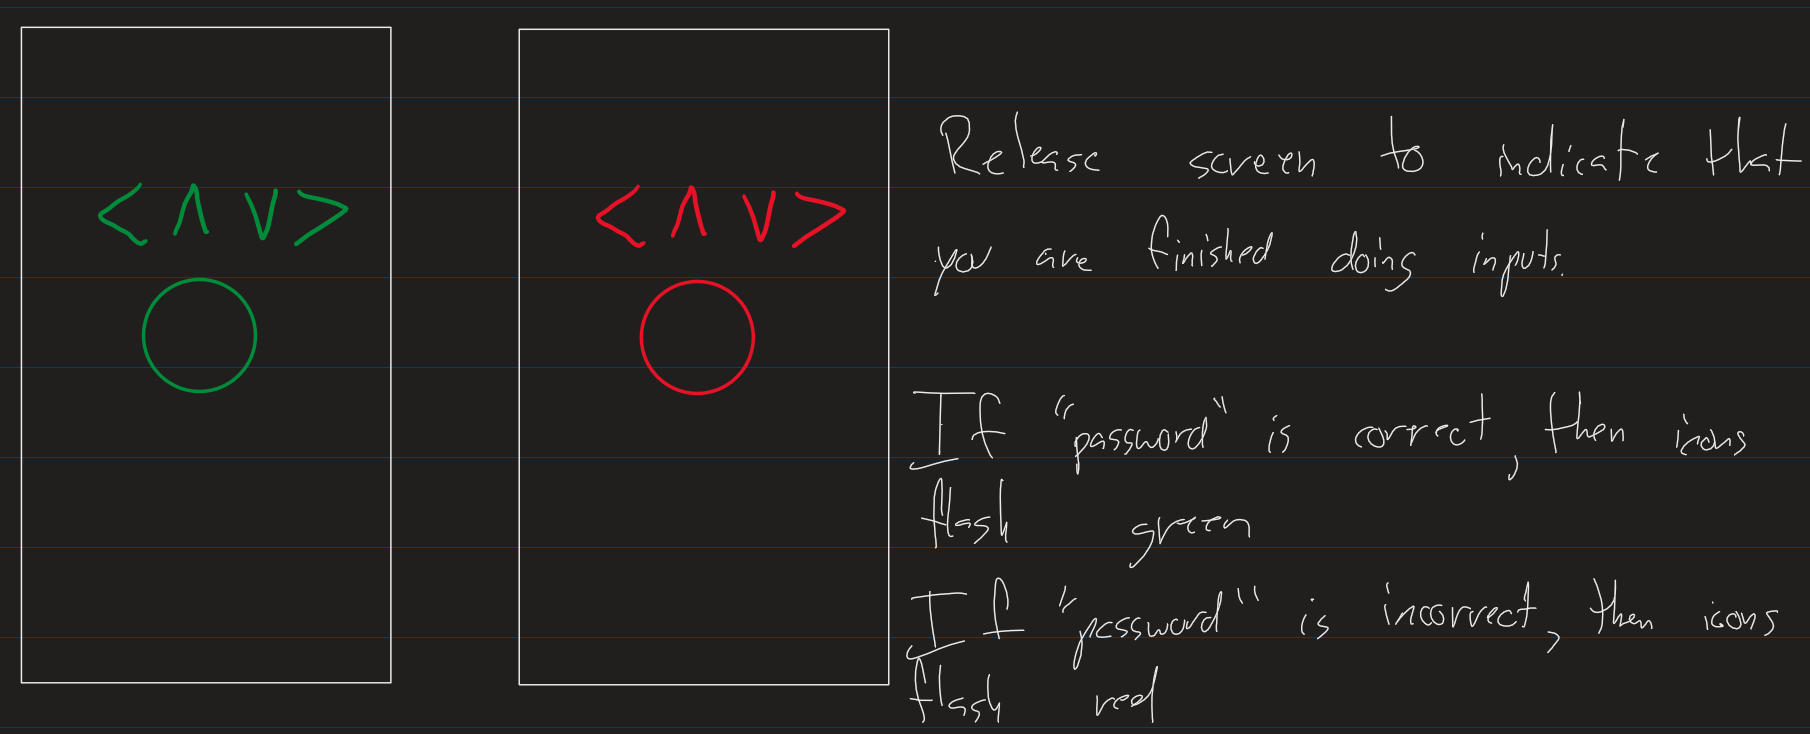 < ∧ ∨ >
< ∧ ∨ >
Release screen to indicate that
you are finished doing inputs.
If "password" is correct, then icons
flash green
If "password" is incorrect, then icons
flash red